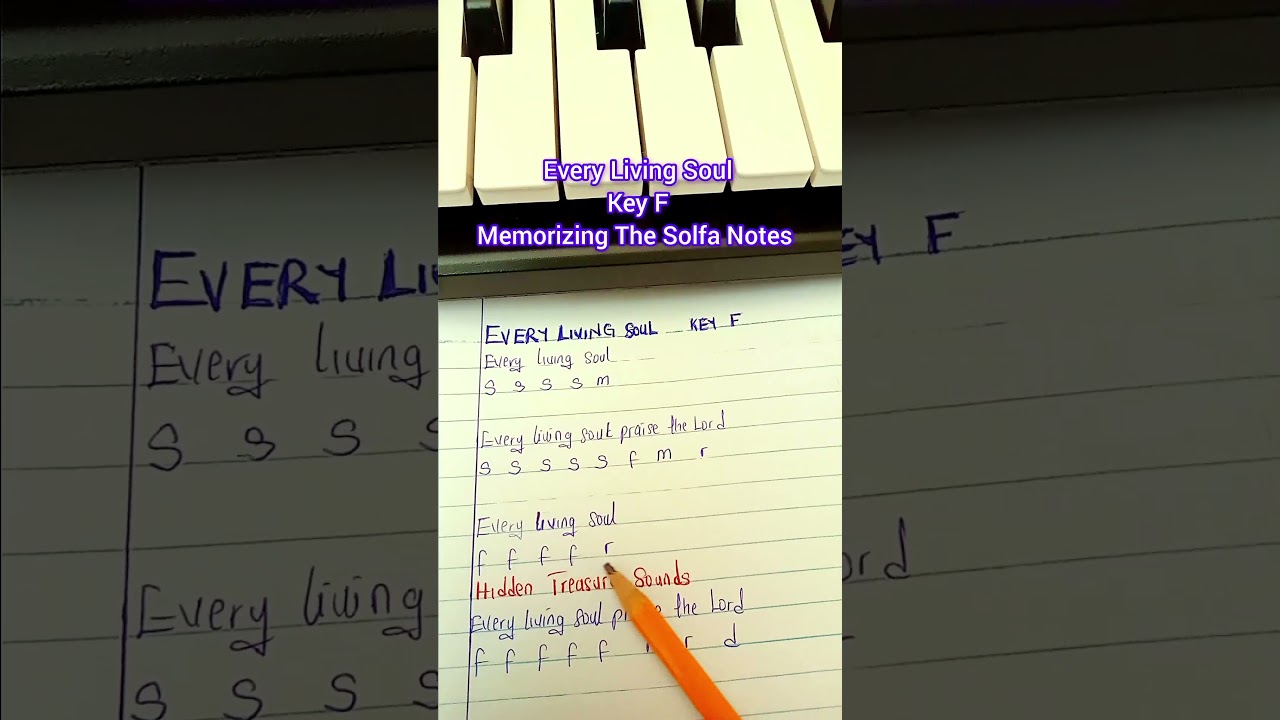 Every Living Soul
Key F
Memorizing The Solfa Notes
EVERY LIVING SOUL KEY F
Every living soul
s s s s m
Every living soul praise the Lord
s s s s s f m r
Every living soul
f f f f r
Hidden Treasure Sounds
Every living soul the Lord
f f f f f r d